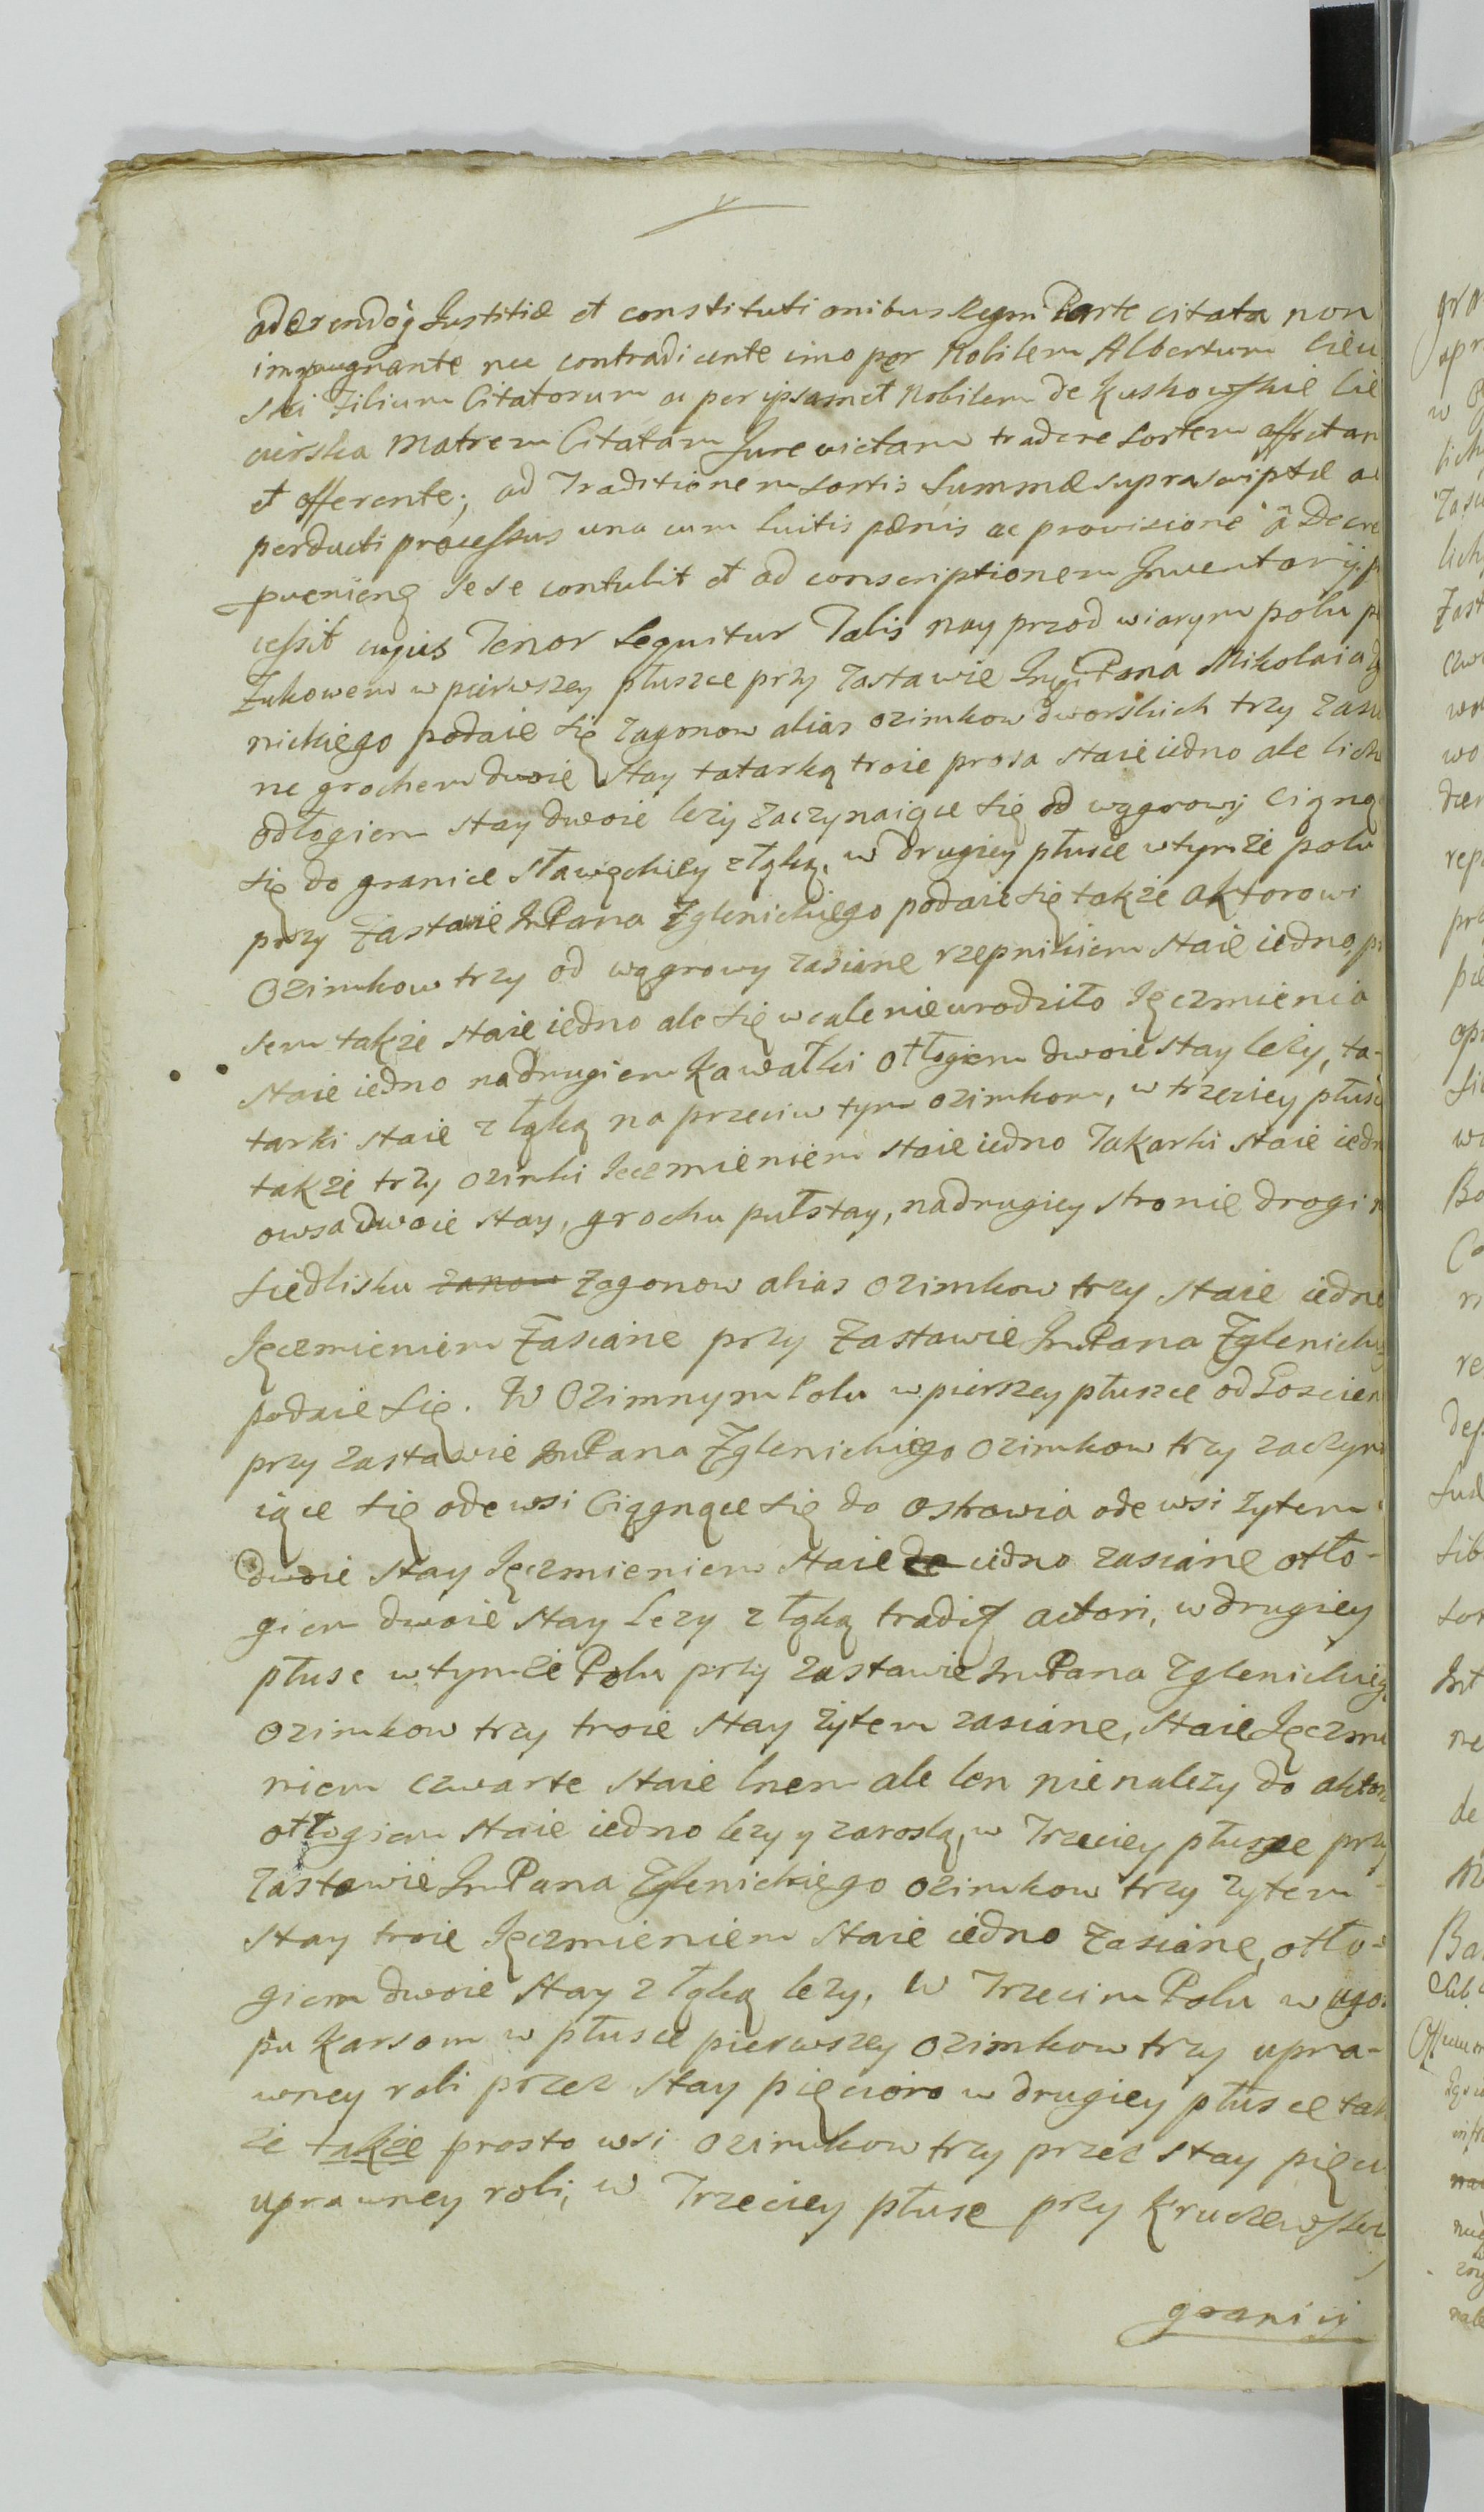 aderendo Justitiæ et constitutionibus Regni Parte citata non
impugnante nec contradicente imo per Nobilem Albertum Cieu
ski Filium Citatorum ac per ipsamet Nobilem de Kuskowskie Cie
cierska Matrem Citatam Jure victam tradere Sortem
et offerente; ad Traditionem Sortis Summæ suprascriptæ ac
perducti processus una cum luitis pænis ac provisione à Decre
sese contulit et ad conscriptionem Inventarij
cessit cujus Tenor Sequitur Talis nay przod w iarym polu
Zukowem w pierwszey płuszce przy Zastawie Pana Mikolaia
nickiego podaie się zagonow alias ozimkow dworskich trzy zasia
ne grochem dwoie Stay tatarką troie prosa staie iedno ale lich
odłogiem stay dwoie leży zaczynaiące się od wągrowy ciągną
się do granice Sławęckiey z łąką, w drugiey płusce w tymże polu
przy Zastawie JmPana Zglenickiego podaie się także aktorowi
Ozimkow trzy od wągrowy zasiane rzepnikiem staie iedno,
sem także staie iedno ale się wcale nie urodziło Jęczmienia
staie iedno na drugiem kawałki otłogiem dwoie stay leży, ta-
tarki staie z łąką na przeciw tym ozimkom, w trzeciey płusc
także trzy ozimki Jęczmieniem staie iedno Takarki staie iedn
owsa dwoie stay, grochu pułstay, na drugiey stronie drogi
Siedlisku zanow zagonow alias ozimkow trzy staie iedno
Jęczmieniem Zasiane przy Zastawie JmPana Zglenick
podaie się. W Ozimnym Polu w pierszey płuszce od Goscien
przy zastawie JmPana Zglenickiego ozimkow trzy zaczyn
iące się ode wsi Ciągnące się do ostrowia ode wsi żytem
dwoie stay Jęczmieniem staie iedno zasiane otło-
giem dwoie stay leży z łąką actori, w drugiey
płusc w tymże Polu przy zastawie JmPana Zglenickieg
ozimkow trzy troie stay żytem zasiane, staie Jęczmi
niem czwarte staie lnem ale len nie należy do aktor
otłogiem staie iedno leży y zarosłą, w Trzeciey płuszce przy
Zastawie JmPana Zglenickiego ozimkow trzy żytem
stay troie Jęczmieniem staie iedno Zasiane, otło-
giem dwoie stay z łąką leży, w Trzecim Polu w ugo-
pu Karsom w płusce pierwszey ozimkow trzy upra-
wney roli przez stay pięcioro w drugiey płusce tak
że także prosto wsi ozimkow trzy przez stay pięci
uprawney roli, w Trzeciey płusc przy Kruczewsk
granicy